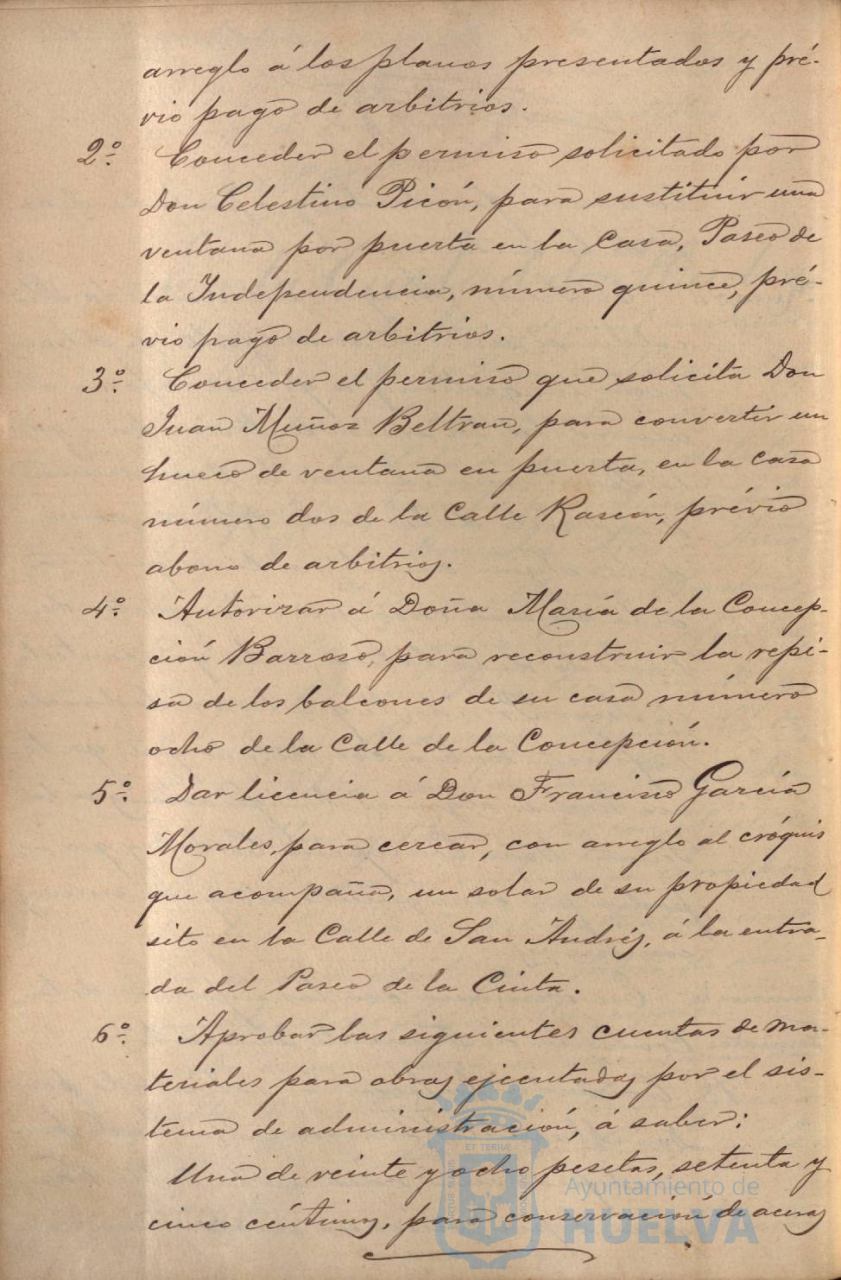 arreglo á los planos presentados y pré-
vio pago de arbitrios.
2º. Conceder el permiso solicitado por
Don Celestino Picón, para sustituir una
ventana por puerta en la casa, Paseo de
la Independencia, número quince, pré-
vio pago de arbitrios.
3º. Conceder el permiso que solicita Don
Juan Muñoz Beltran, para convertir un
hueco de ventana en puerta, en la casa
número dos de la Calle Rascón, prévio
abono de arbitrios.
4º. Autorizar á Doña María de la Concep-
ción Barroso, para reconstruir la repi-
sa de los balcones de su casa número
ocho de la Calle de la Concepción.
5º. Dar licencia á Don Francisco García
Morales, para cercar, con arreglo al cróquis
que acompaña, un solar de su propiedad
sito en la Calle de San Andrés, á la entra-
da del Paseo de la Cinta.
6º. Aprobar las siguientes cuentas de ma-
teriales para obras ejecutadas por el sis-
tema de administración, á saber:
Una de veinte y ocho pesetas, setenta y
cinco céntimos, para conservación de aceras
Ayuntamiento de
HUELVA